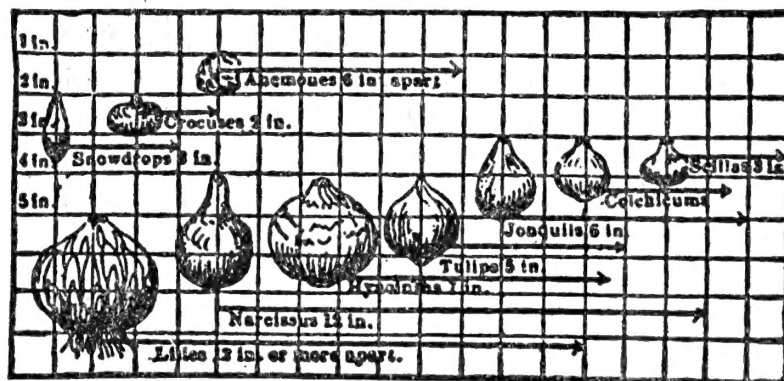 1 in.
Anemones 6 in apart
2 in.
3 in.
Crocuses 2 in.
Snowdrops 3 in.
4 in.
Scillas 3 in.
Colchicums
5 in.
Jonquils 6 in.
Tulips 5 in.
Hyacinths 7 in.
Narcissus 12 in.
Lilies 12 in. or more apart.